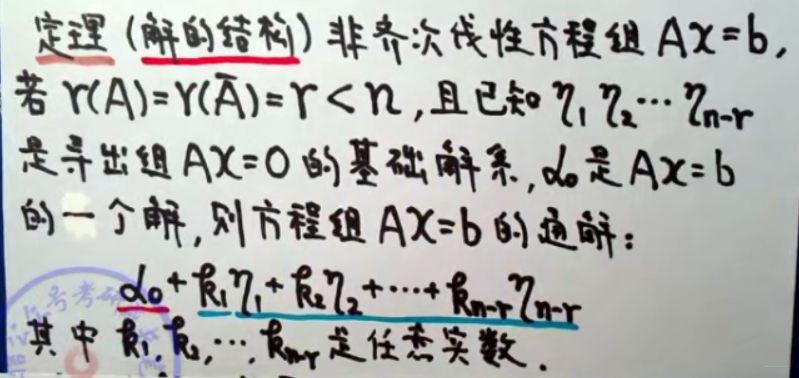 定理(解的结构)非齐次线性方程组 AX=b,
若 r(A)=r(Ā)=r<n,且已知 η₁ η₂⋯ηₙ₋ᵣ
是导出组 AX=0 的基础解系,α₀是 AX=b
的一个解,则方程组 AX=b 的通解:
α₀+k₁η₁+k₂η₂+⋯+kₙ₋ᵣηₙ₋ᵣ
其中 k₁,k₂,⋯,kₙ₋ᵣ是任意实数.
号考研